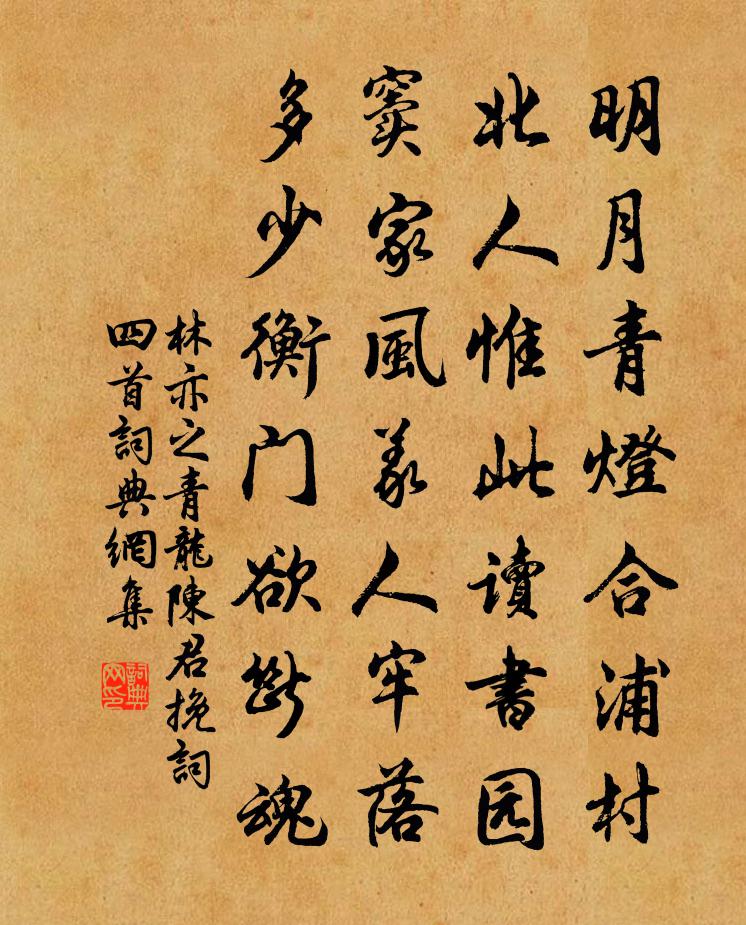 明月青燈合浦村
北人惟此讀書园
竇家風義人牢落
多少衡门欲斷魂
林亦之青龍陳君挽詞
四首詞典網集
詞典
网印